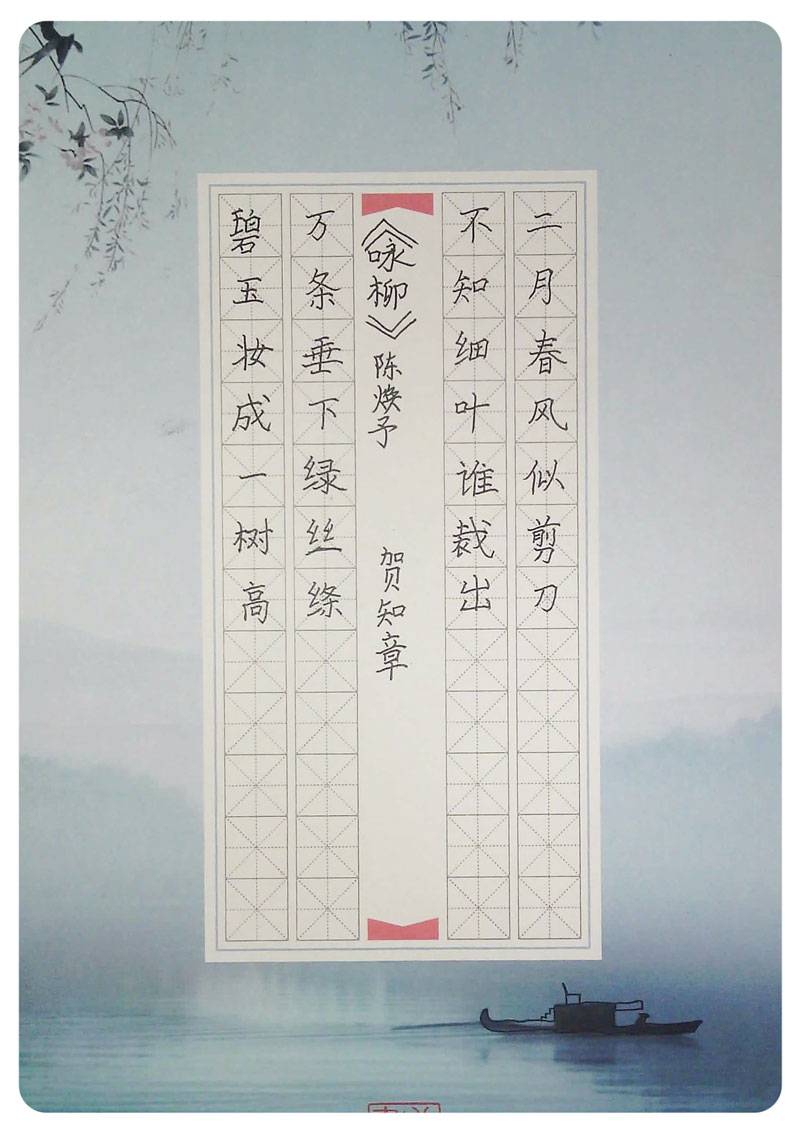 碧玉妆成一树高
万条垂下绿丝绦
《咏柳》
陈焕予
贺知章
不知细叶谁裁出
二月春风似剪刀